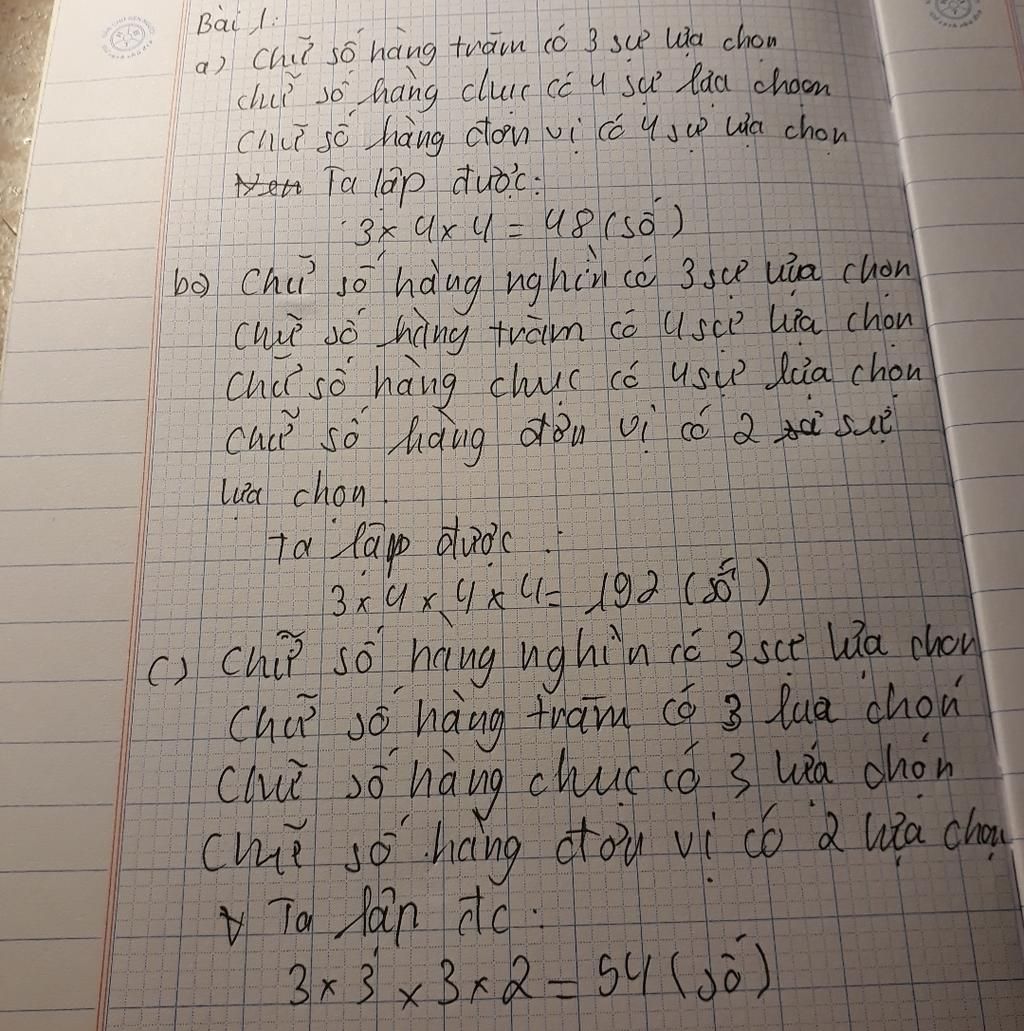 Bài 1:
a) Chữ số hàng trăm có 3 sự lựa chọn
chữ số hàng chục có 4 sự lựa choon
Chữ số hàng đơn vị có 4 sự lựa chọn
Nen Ta lập được:
3 x 4 x 4 = 48 (số)
b) Chữ số hàng nghìn có 3 sự lựa chọn
Chữ số hàng trăm có 4 sự lựa chọn
Chữ số hàng chục có 4 sự lựa chọn
Chữ số hàng đơn vị có 2 sự
lựa chọn.
Ta lập được:
3 x 4 x 4 x 4 = 192 (số)
c) Chữ số hàng nghìn có 3 sự lựa chọn
Chữ số hàng trăm có 3 lựa chọn
Chữ số hàng chục có 3 lựa chọn
Chữ số hàng đơn vị có 2 lựa chọn
Ta lập đc:
3 x 3 x 3 x 2 = 54 (số)